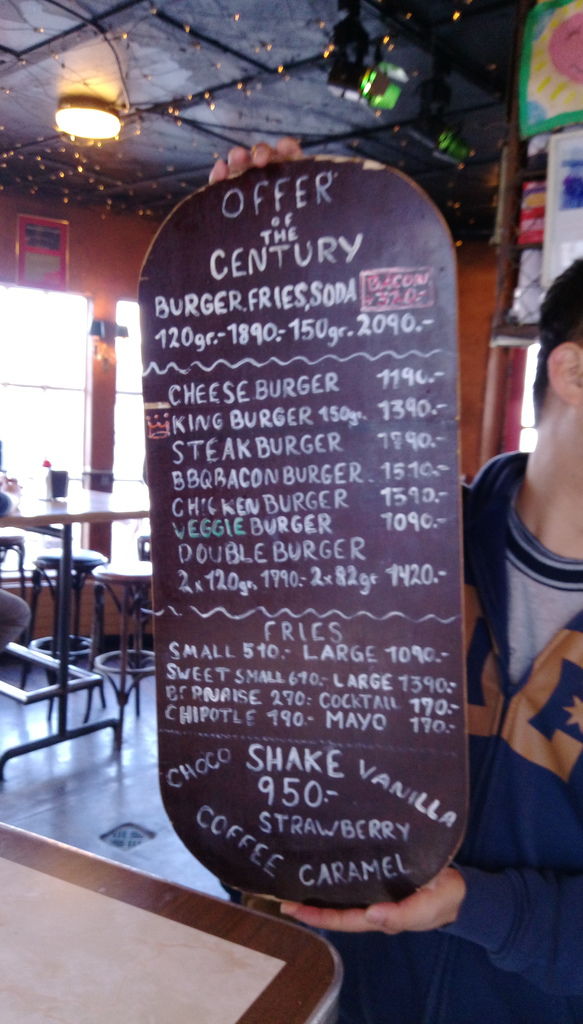 OFFER
OF
THE
CENTURY
BURGER, FRIES, SODA BACON
120gr.-1890.-150gr. 2090.-
CHEESE BURGER 1190.-
KING BURGER 150gr. 1390.-
STEAK BURGER 1790.-
BBQ BACON BURGER 1510.-
CHICKEN BURGER 1390.-
VEGGIE BURGER 1090.-
DOUBLE BURGER
2x120gr. 1790.- 2x82gr 1420.-
FRIES
SMALL 510.- LARGE 1090.-
SWEET SMALL 610.- LARGE 1390.-
BERNAISE 270: COCKTAIL 170.-
CHIPOTLE 190.- MAYO 170.-
CHOCO SHAKE VANILLA
950.-
STRAWBERRY
COFFEE CARAMEL